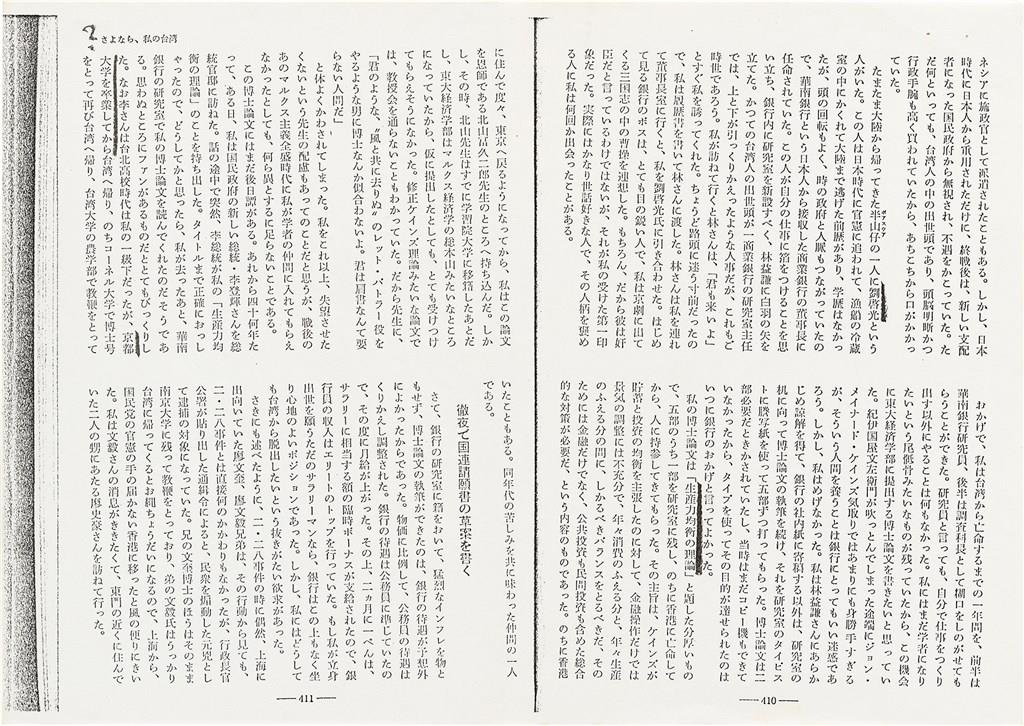 ネシアに施政官として派遣されたこともある。しかし、日本
時代に日本人から重用されただけに、終戦後は、新しい支配
者になった国民政府から無視され、不遇をかこっていた。た
だ何といっても、台湾人の中の出世頭であり、頭脳明晰かつ
行政手腕も高く買われていたから、あちこちから口がかかっ
ていた。
たまたま大陸から帰ってきた半山仔の一人に劉啓光という
人がいた。この人は日本時代に官憲に追われて、漁船の冷蔵
室の中にかくれて大陸まで逃げた前歴があり、学歴はなかっ
たが、頭の回転もよく、時の政府と人脈もつながっていたの
で、華南銀行という日本人から接収した商業銀行の董事長に
任命されていた。この人が自分の仕事に箔をつけることを思
い立ち、銀行内に研究室を新設すべく、林益謙に白羽の矢を
立てた。かつての台湾人の出世頭が一商業銀行の研究室主任
では、上と下が引っくりかえったような人事だが、これもご
時世であろう。私が訪ねて行くと林さんは、「君も来いよ」
とすぐ私を誘ってくれた。ちょうど路頭に迷う寸前だったの
で、私は履歴書を書いて林さんに渡した。林さんは私を連れ
て董事長室に行くと、私を劉啓光氏に引き合わせた。はじめ
て見る銀行のボスは、とても目の鋭い人で、私は京劇に出て
くる三国志の中の曹操を連想した。もちろん、だから彼は奸
臣だと言っているわけではないが、それが私の受けた第一印
象だった。実際にはかなり世話好きな人で、その人柄を褒め
る人に私は何回か出会ったことがある。
おかげで、私は台湾から亡命するまでの一年間を、前半は
華南銀行研究員、後半は調査科長として糊口をしのがせても
らうことができた。研究員と言っても、自分で仕事をつくり
出す以外にやることは何もなかった。私にはまだ学者になり
たいという尾骶骨みたいなものが残っていたから、この機会
に東大経済学部に提出する博士論文を書きたいと思ってい
た。紀伊国屋文左衛門が吹っとんでしまった途端にジョン・
メイナード・ケインズ気取りではあまりにも身勝手すぎる
が、そういう人間を養うことは銀行にとってもいい迷惑であ
ろう。しかし、私はめげなかった。私は林益謙さんにあらか
じめ諒解を得て、銀行の社内紙に寄稿する以外は、研究室の
机に向って博士論文の執筆を続け、それを研究室のタイピス
トに謄写紙を使って五部ずつ打ってもらった。博士論文は二
部必要だときかされていたし、当時はまだコピー機もできて
いなかったから、タイプを使ってその目的が達せられたのは
いつに銀行のおかげと言ってよかった。
私の博士論文は「生産力均衡の理論」と題した分厚いもの
で、五部のうち一部を研究室に残し、のちに香港に亡命して
から、人に持参してきてもらった。その主旨は、ケインズが
貯蓄と投資の均衡を主張したのに対して、金融操作だけでは
景気の調整には不充分で、年々消費のふえる分と、年々生産
のふえる分の間に、しかるべきバランスをとるべきだ、その
ためには金融だけでなく、公共投資も民間投資も含めた総合
的な対策が必要だ、という内容のものであった。のちに香港
— 410 —
さよなら、私の台湾
に住んで度々、東京へ戻るようになってから、私はこの論文
を恩師である北山富久二郎先生のところへ持ち込んだ。しか
し、その時、北山先生はすでに学習院大学に移籍したあとだ
し、東大経済学部はマルクス経済学の総本山みたいなところ
になっていたから、仮に提出したとしても、とても受けつけ
てもらえそうになかった。修正ケインズ理論みたいな論文で
は、教授会を通らないこともわかっていた。だから先生に、
「君のような、〝風と共に去りぬ〟のレット・バトラー役を
やるような男に博士なんか似合わないよ。君は肩書なんて要
らない人間だ」
と体よくかわされてしまった。私をこれ以上、失望させた
くないという先生の配慮もあってのことだと思うが、戦後の
あのマルクス主義全盛時代に私が学者の仲間に入れてもらえ
なかったとしても、何ら異とするに足らないことである。
この博士論文にはまだ後日譚がある。あれから四十何年た
って、ある日、私は国民政府の新しい総統・李登輝さんを総
統官邸に訪ねた。話の途中で突然、李総統が私の「生産力均
衡の理論」のことを持ち出した。タイトルまで正確におっし
ゃったので、どうしてかと思ったら、私が去ったあと、華南
銀行の研究室で私の博士論文を読んでくれたのだそうであ
る。思わぬところにファンがあるものだととてもびっくりし
た。なお李さんは台北高校時代は私の一級下だったが、京都
大学を卒業してから台湾へ帰り、のちコーネル大学で博士号
をとって再び台湾へ帰り、台湾大学の農学部で教鞭をとって
いたこともある。同年代の苦しみを共に味わった仲間の一人
である。
徹夜で国連請願書の草案を書く
さて、銀行の研究室に籍をおいて、猛烈なインフレを物と
もせず、博士論文の執筆ができたのは、銀行の待遇が予想外
によかったからであった。物価に比例して、公務員の待遇は
くりかえし改善された。銀行の待遇は公務員に準じていたの
で、その度に月給が上がった。その上、二ヵ月に一ぺんは、
サラリーに相当する額の臨時ボーナスが支給されたので、銀
行員の収入はエリートのトップを行っていた。もし私が立身
出世を願うただのサラリーマンなら、銀行はこの上もなく坐
り心地のよいポジションであった。しかし、私にはどうして
も台湾から脱出したいという抜きがたい欲求があった。
さきにも述べたように、二・二八事件の時に偶然、上海に
出向いていた廖文奎、廖文毅兄弟は、その行動から見ても、
二・二八事件とは直接何のかかわりもなかったが、行政長官
公署が貼り出した通緝令によると、民衆を煽動した元兇とし
て逮捕の対象になっていた。兄の文奎博士のほうはそのまま
南京大学に残って教鞭をとっており、弟の文毅氏はうっかり
台湾に帰ってくるとお縄ちょうだいになるので、上海から、
国民党の官憲の手の届かない香港に移ったと風の便りにきい
た。私は文毅さんの消息がききたくて、東門の近くに住んで
いた二人の甥にあたる廖史豪さんを訪ねて行った。
— 411 —